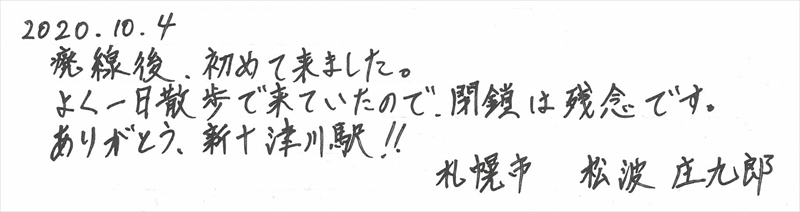 2020.10.4
廃線後、初めて来ました。
よく一日散歩で来ていたので、閉鎖は残念です。
ありがとう、新十津川駅!!
札幌市 松波 庄九郎